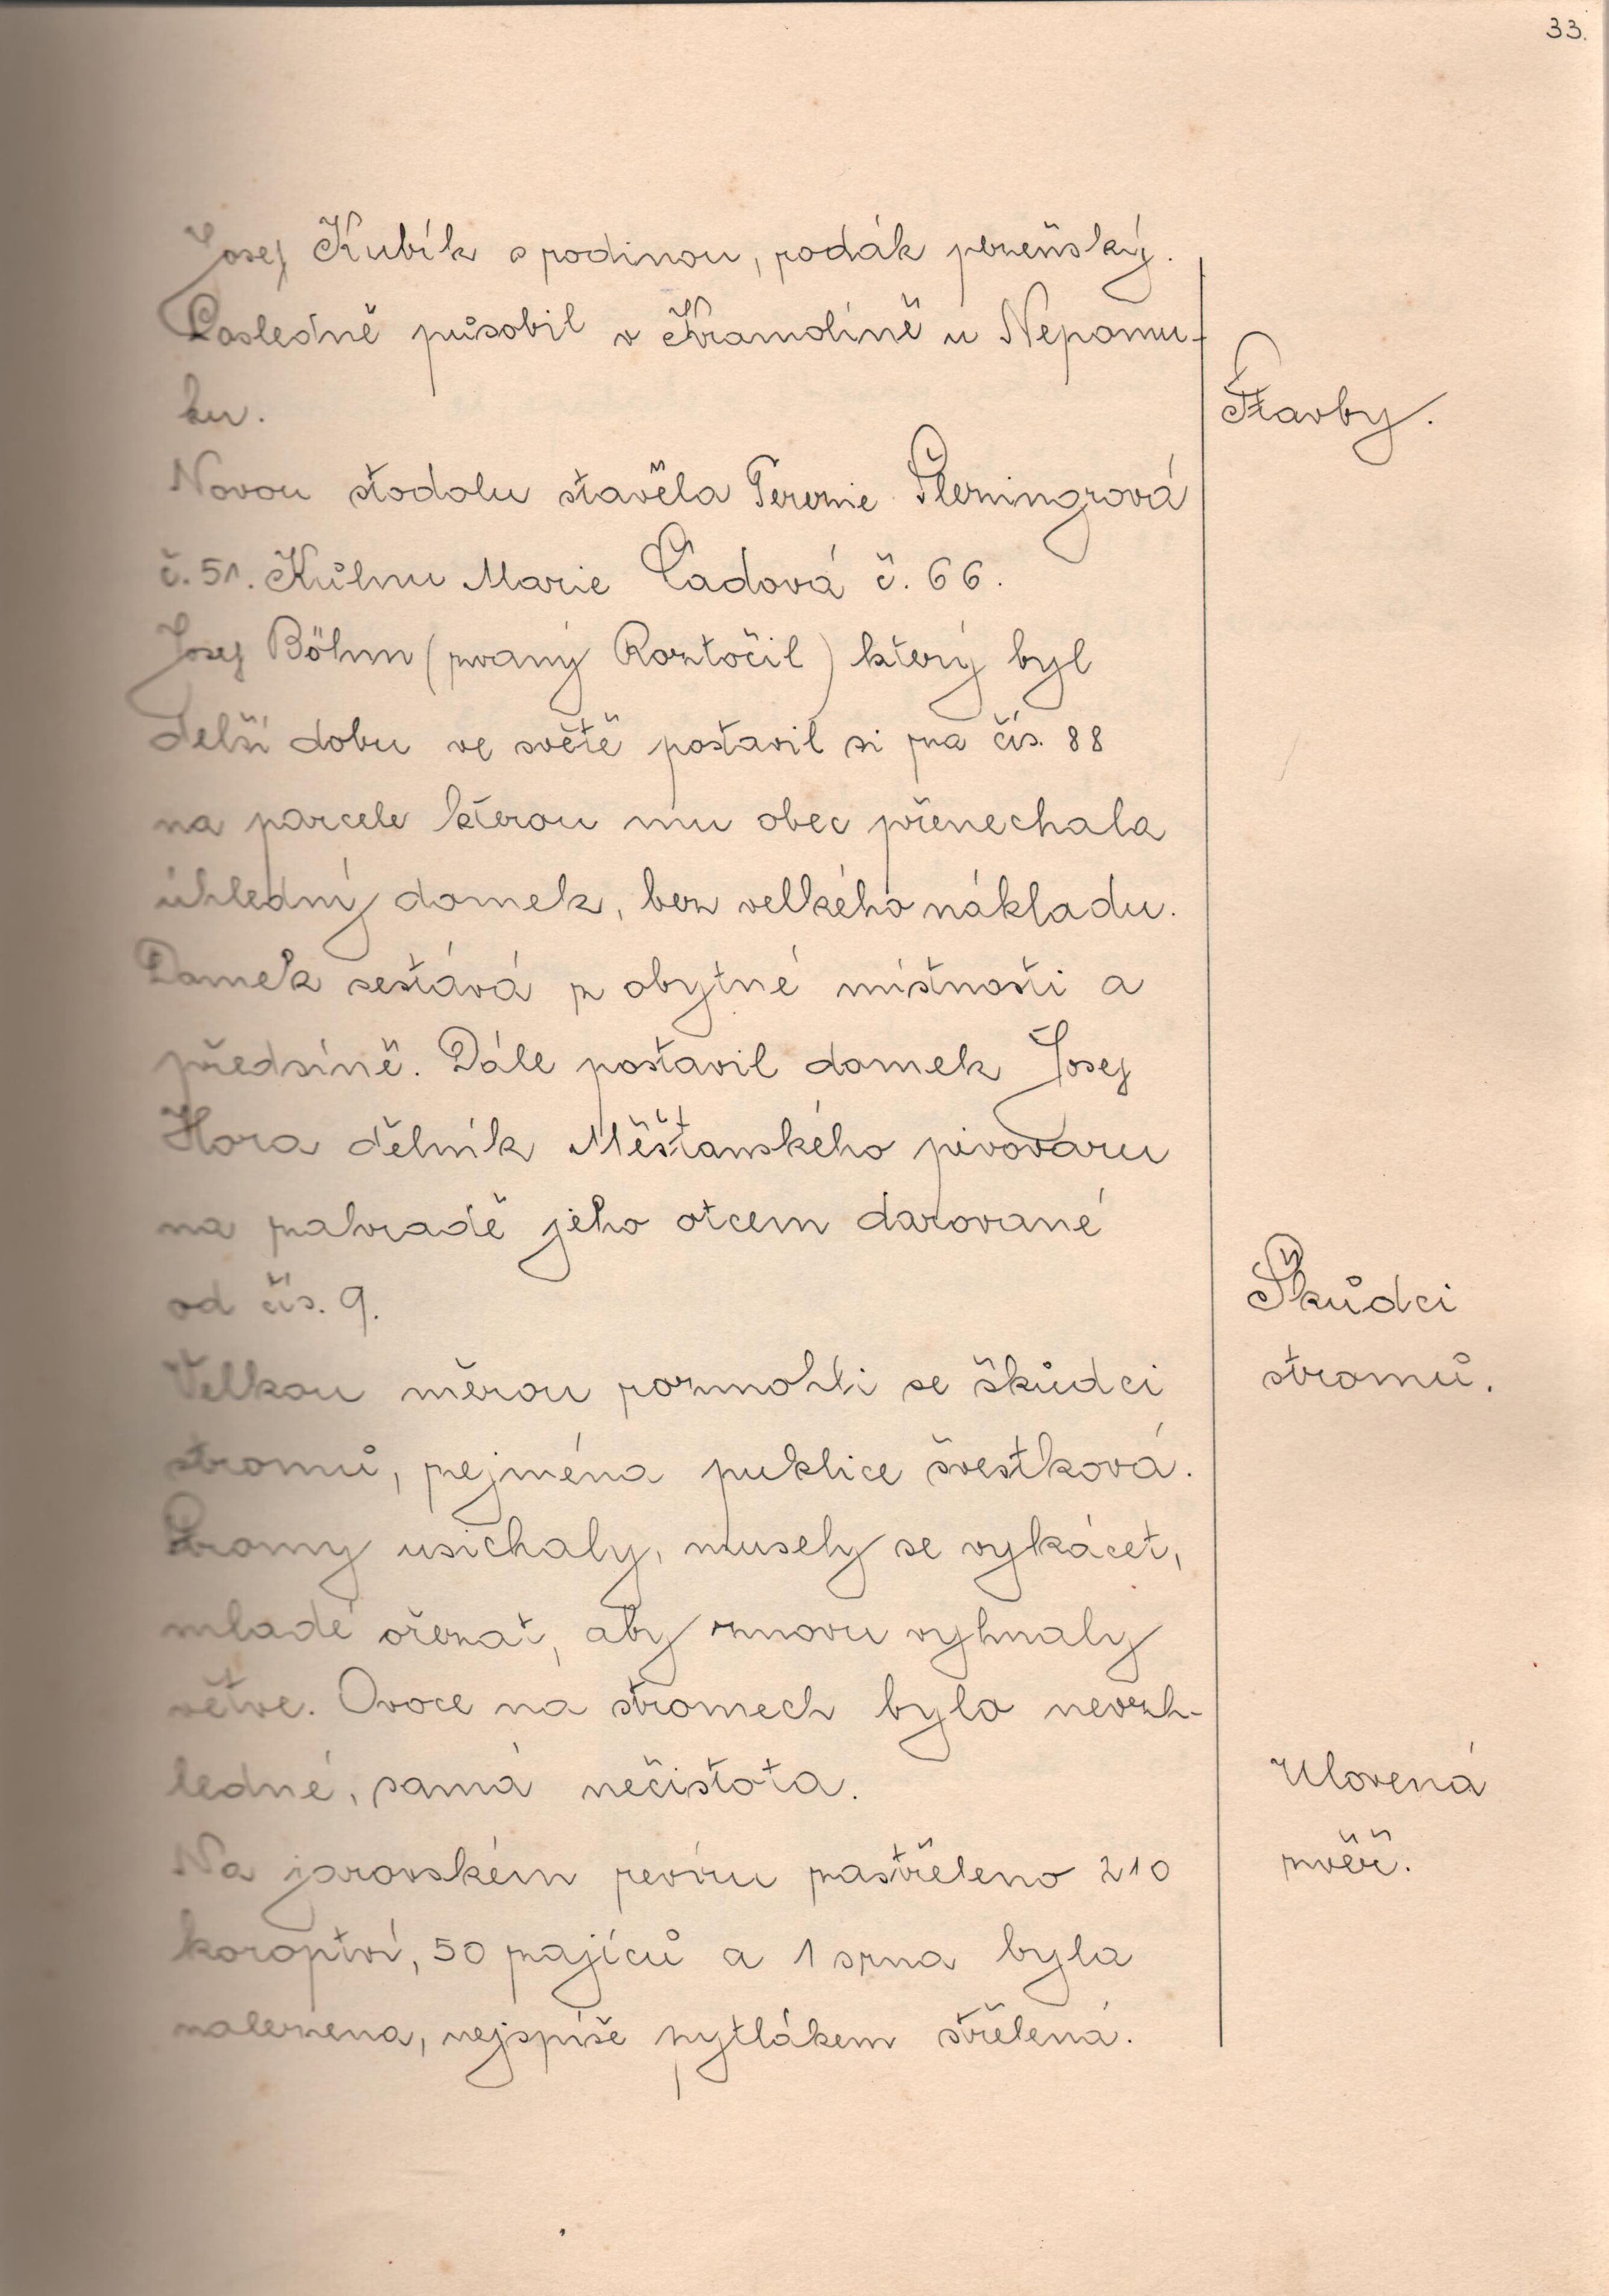 33.
Josef Kubík s rodinou, rodák pzeňský.
Posledně působil v Kramolíně u Nepomu-
ku.
Stavby.
Novou stodolu stavěla Terezie Šleningrová
č. 51. Kůlnu Marie Čadová č. 66.
Josef Böhm (zvaný Roztočil) který byl
delší dobu ve světě postavil si za čís. 88
na parcele kterou mu obec přenechala
úhledný domek, bez velkého nákladu.
Domek sestává z obytné místnosti a
předsíně. Dále postavil domek Josef
Hora dělník Měšťanského pivovaru
na zahradě jeho otcem darované
od čís. 9.
Škůdci
stromů.
Velkou měrou rozmohli se škůdci
stromů, zejména puklice švestková.
Stromy usichaly, musely se vykácet,
mladé ořezat, aby znovu vyhnaly
větve. Ovoce na stromech bylo nevzh-
ledné, samá nečistota.
Ulovená
zvěř.
Na jarovském revíru zastřeleno 210
koroptví, 50 zajíců a 1 srna byla
nalezena, nejspíše pytlákem střelená.